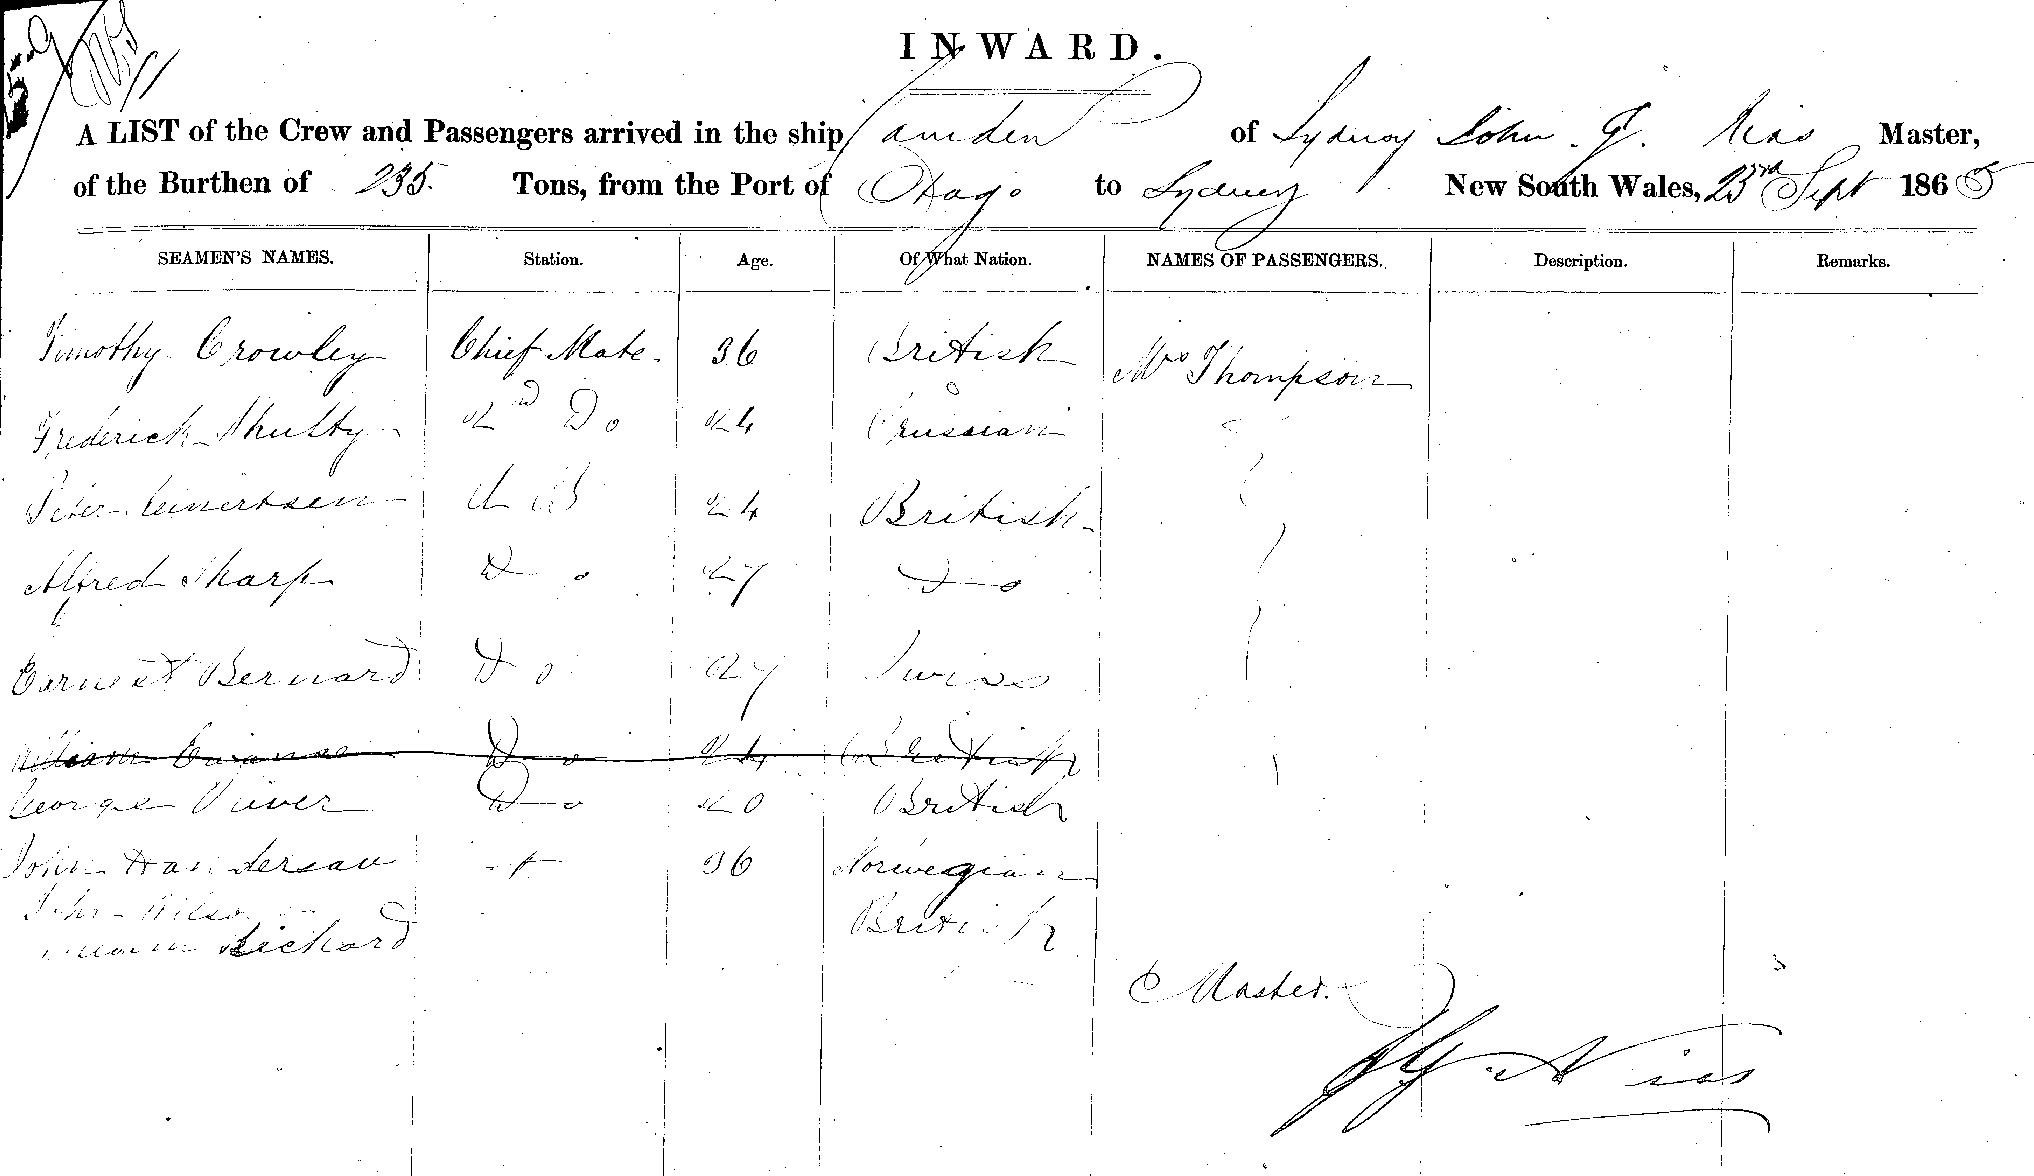 INWARD.
A LIST of the Crew and Passengers arrived in the ship Camden of Sydney John G. Nias Master,
of the Burthen of 235. Tons, from the Port of Otago to Sydney New South Wales, 23rd Sept 1865
SEAMEN'S NAMES. Station. Age. Of What Nation. NAMES OF PASSENGERS. Description. Remarks.
Timothy Crowley Chief Mate. 36 British Mrs Thompson
Frederick Shulty 2nd Do 24 Prussian
Peter A B 24 British
Alfred Sharp Do 27 Do
Earnest Bernard Do 27 Swiss
William Do 24 British
George Do 20 British
John 36 Norwegian
John Wilson British
Richard
Master.
Nias